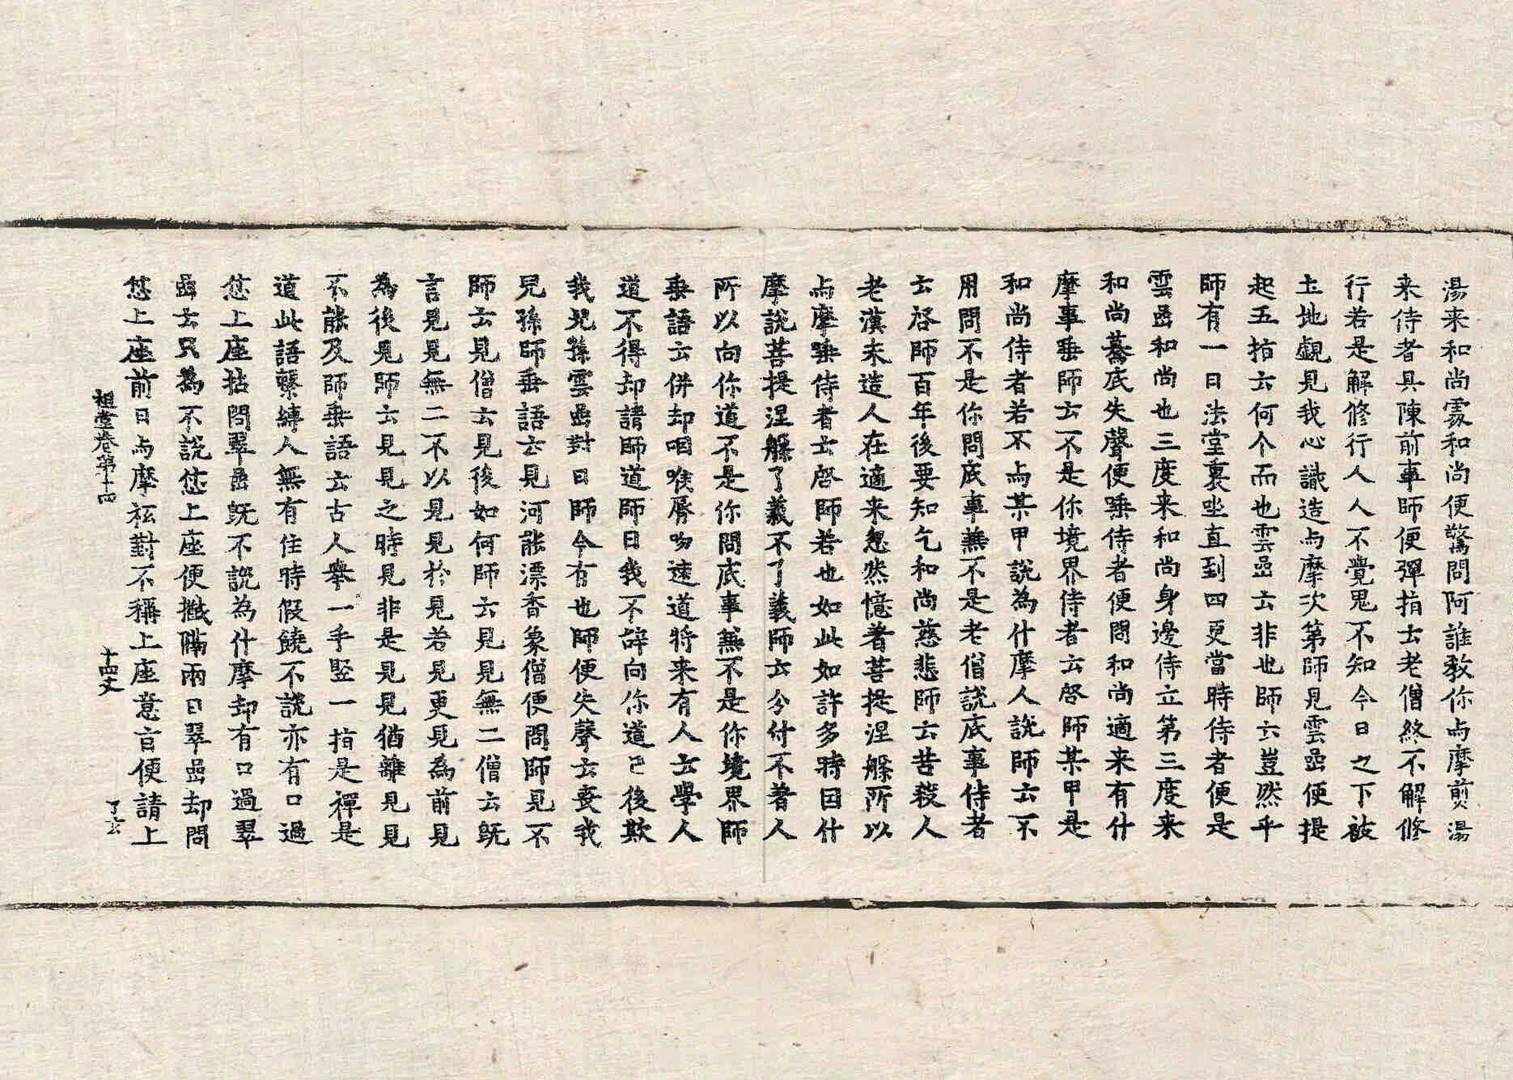 湯来和尚䖏和尚便驚問阿誰教你与摩煎湯
来侍者具陳前事師便彈指云老僧終不解修
行若是解修行人人不覺鬼不知今日之下被
土地覷見我心識造与摩次第師見雲嵒便提
起五指云何个而也雲嵒云非也師云豈然乎
師有一日法堂裏坐直到四更當時侍者便是
雲嵒和尚也三度来和尚身邊侍立第三度来
和尚驀底失聲便唾侍者便問和尚適来有什
摩事唾師云不是你境界侍者云啓師某甲是
和尚侍者若不与某甲說為什摩人說師云不
用問不是你問底事兼不是老僧說底事侍者
云啓師百年後要知乞和尚慈悲師云苦殺人
老漢未造人在適来忽然憶著菩提涅槃所以
与摩唾侍者云啓師若也如此如許多時因什
摩說菩提涅槃了義不了義師云分付不著人
所以向你道不是你問底事兼不是你境界師
垂語云併却咽喉脣吻速道將来有人云學人
道不得却請師道師曰我不辞向你道已後欺
我兒孫雲嵒對曰師今有也師便失聲云喪我
兒孫師垂語云見河能漂香象僧便問師見不
師云見僧云見後如何師云見見無二僧云既
言見見無二不以見見於見若見更見為前見
為後見師云見見之時見非是見見猶離見見
不能及師垂語云古人舉一手竪一指是禪是
道此語繫縛人無有住時假饒不說亦有口過
上座拈問翠嵒既不說為什摩却有口過翠
嵒云只為不說 上座便 兩日翠嵒却問
上座前日与摩祗對不稱上座意旨便請上
祖堂卷第十四 十四丈